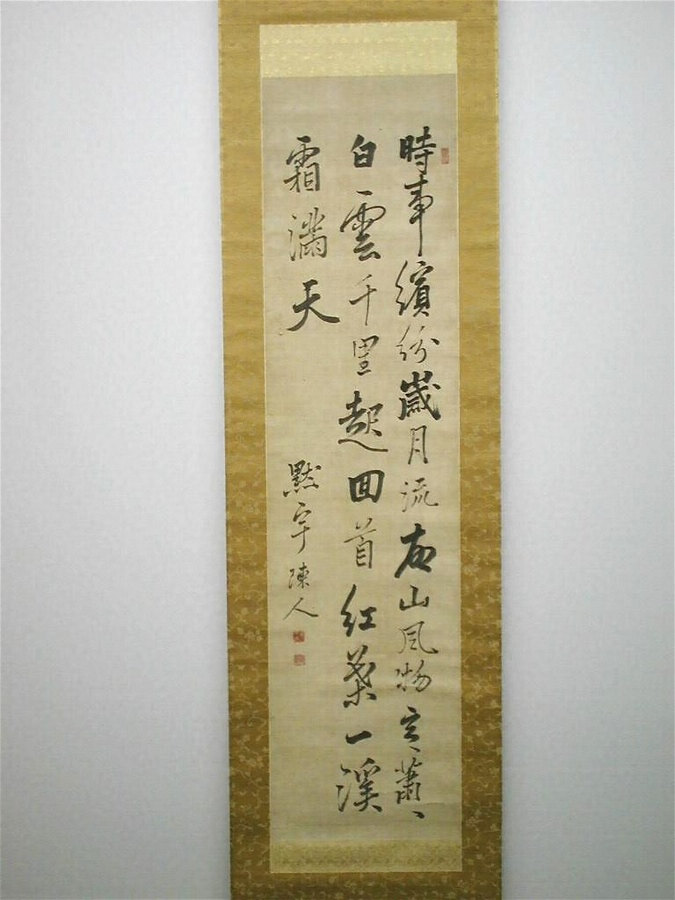 時事繽紛歳月流故山風物定蕭〻
白雲千里起回首紅葉一溪
霜滿天
黙宇陳人